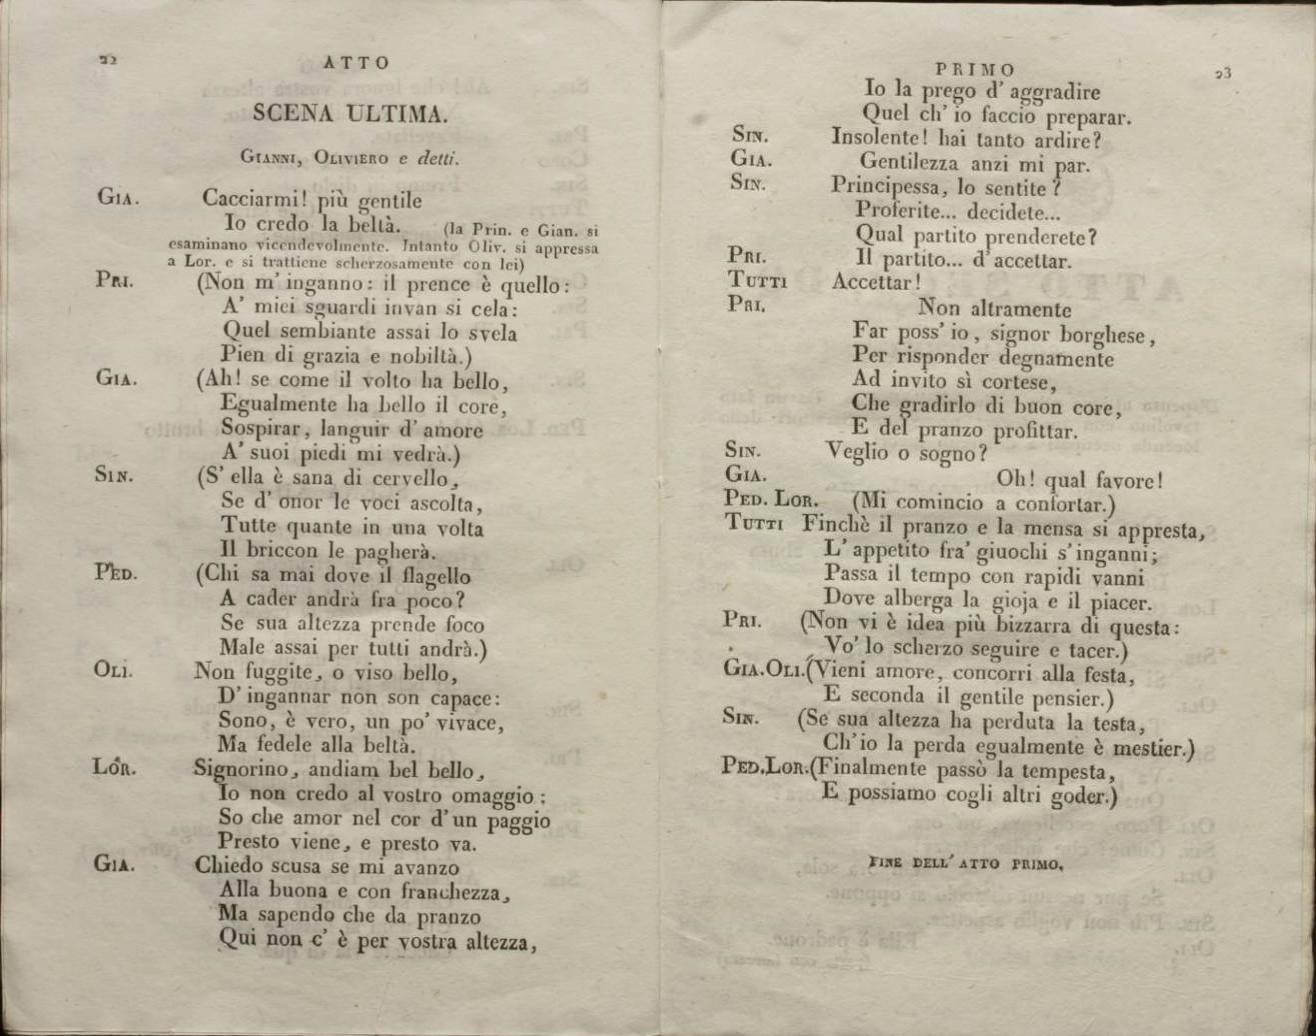 22
ATTO
SCENA ULTIMA.
GIANNI, OLIVIERO e detti.
GIA. Cacciarmi! più gentile
Io credo la beltà. (la Prin. e Gian. si
esaminano vicendevolmente. Intanto Oliv. si appressa
a Lor. e si trattiene scherzosamente con lei)
PRI. (Non m' inganno: il prence è quello:
A' miei sguardi invan si cela:
Quel sembiante assai lo svela
Pien di grazia e nobiltà.)
GIA. (Ah! se come il volto ha bello,
Egualmente ha bello il core,
Sospirar, languir d' amore
A' suoi piedi mi vedrà.)
SIN. (S' ella è sana di cervello,
Se d' onor le voci ascolta,
Tutte quante in una volta
Il briccon le pagherà.
PED. (Chi sa mai dove il flagello
A cader andrà fra poco?
Se sua altezza prende foco
Male assai per tutti andrà.)
OLI. Non fuggite, o viso bello,
D' ingannar non son capace:
Sono, è vero, un po' vivace,
Ma fedele alla beltà.
LOR. Signorino, andiam bel bello,
Io non credo al vostro omaggio:
So che amor nel cor d' un paggio
Presto viene, e presto va.
GIA. Chiedo scusa se mi avanzo
Alla buona e con franchezza,
Ma sapendo che da pranzo
Qui non c' è per vostra altezza,
PRIMO
23
Io la prego d' aggradire
Quel ch' io faccio preparar.
SIN. Insolente! hai tanto ardire?
GIA. Gentilezza anzi mi par.
SIN. Principessa, lo sentite?
Proferite... decidete...
Qual partito prenderete?
PRI. Il partito... d' accettar.
TUTTI Accettar!
PRI. Non altramente
Far poss' io, signor borghese,
Per risponder degnamente
Ad invito sì cortese,
Che gradirlo di buon core,
E del pranzo profittar.
SIN. Veglio o sogno?
GIA. Oh! qual favore!
PED. LOR. (Mi comincio a confortar.)
TUTTI Finchè il pranzo e la mensa si appresta,
L' appetito fra' giuochi s' inganni;
Passa il tempo con rapidi vanni
Dove alberga la gioja e il piacer.
PRI. (Non vi è idea più bizzarra di questa:
Vo' lo scherzo seguire e tacer.)
GIA. OLI. (Vieni amore, concorri alla festa,
E seconda il gentile pensier.)
SIN. (Se sua altezza ha perduta la testa,
Ch' io la perda egualmente è mestier.)
PED. LOR. (Finalmente passò la tempesta,
E possiamo cogli altri goder.)
FINE DELL' ATTO PRIMO.